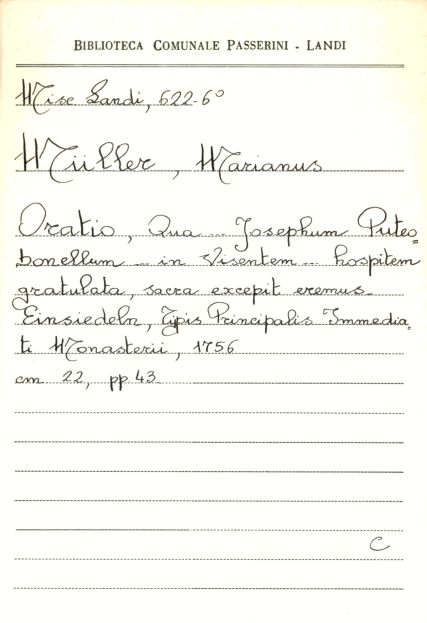 BIBLIOTECA COMUNALE PASSERINI - LANDI
Misc Landi, 622-6°
Müller, Marianus
Oratio, Qua ... Josephum Puteo=
bonellum ... in Visentem ... hospitem
gratulata, sacra excepit eremus.
Einsiedeln, Typis Principalis Immedia=
ti Monasterii, 1756
cm 22, pp 43
C